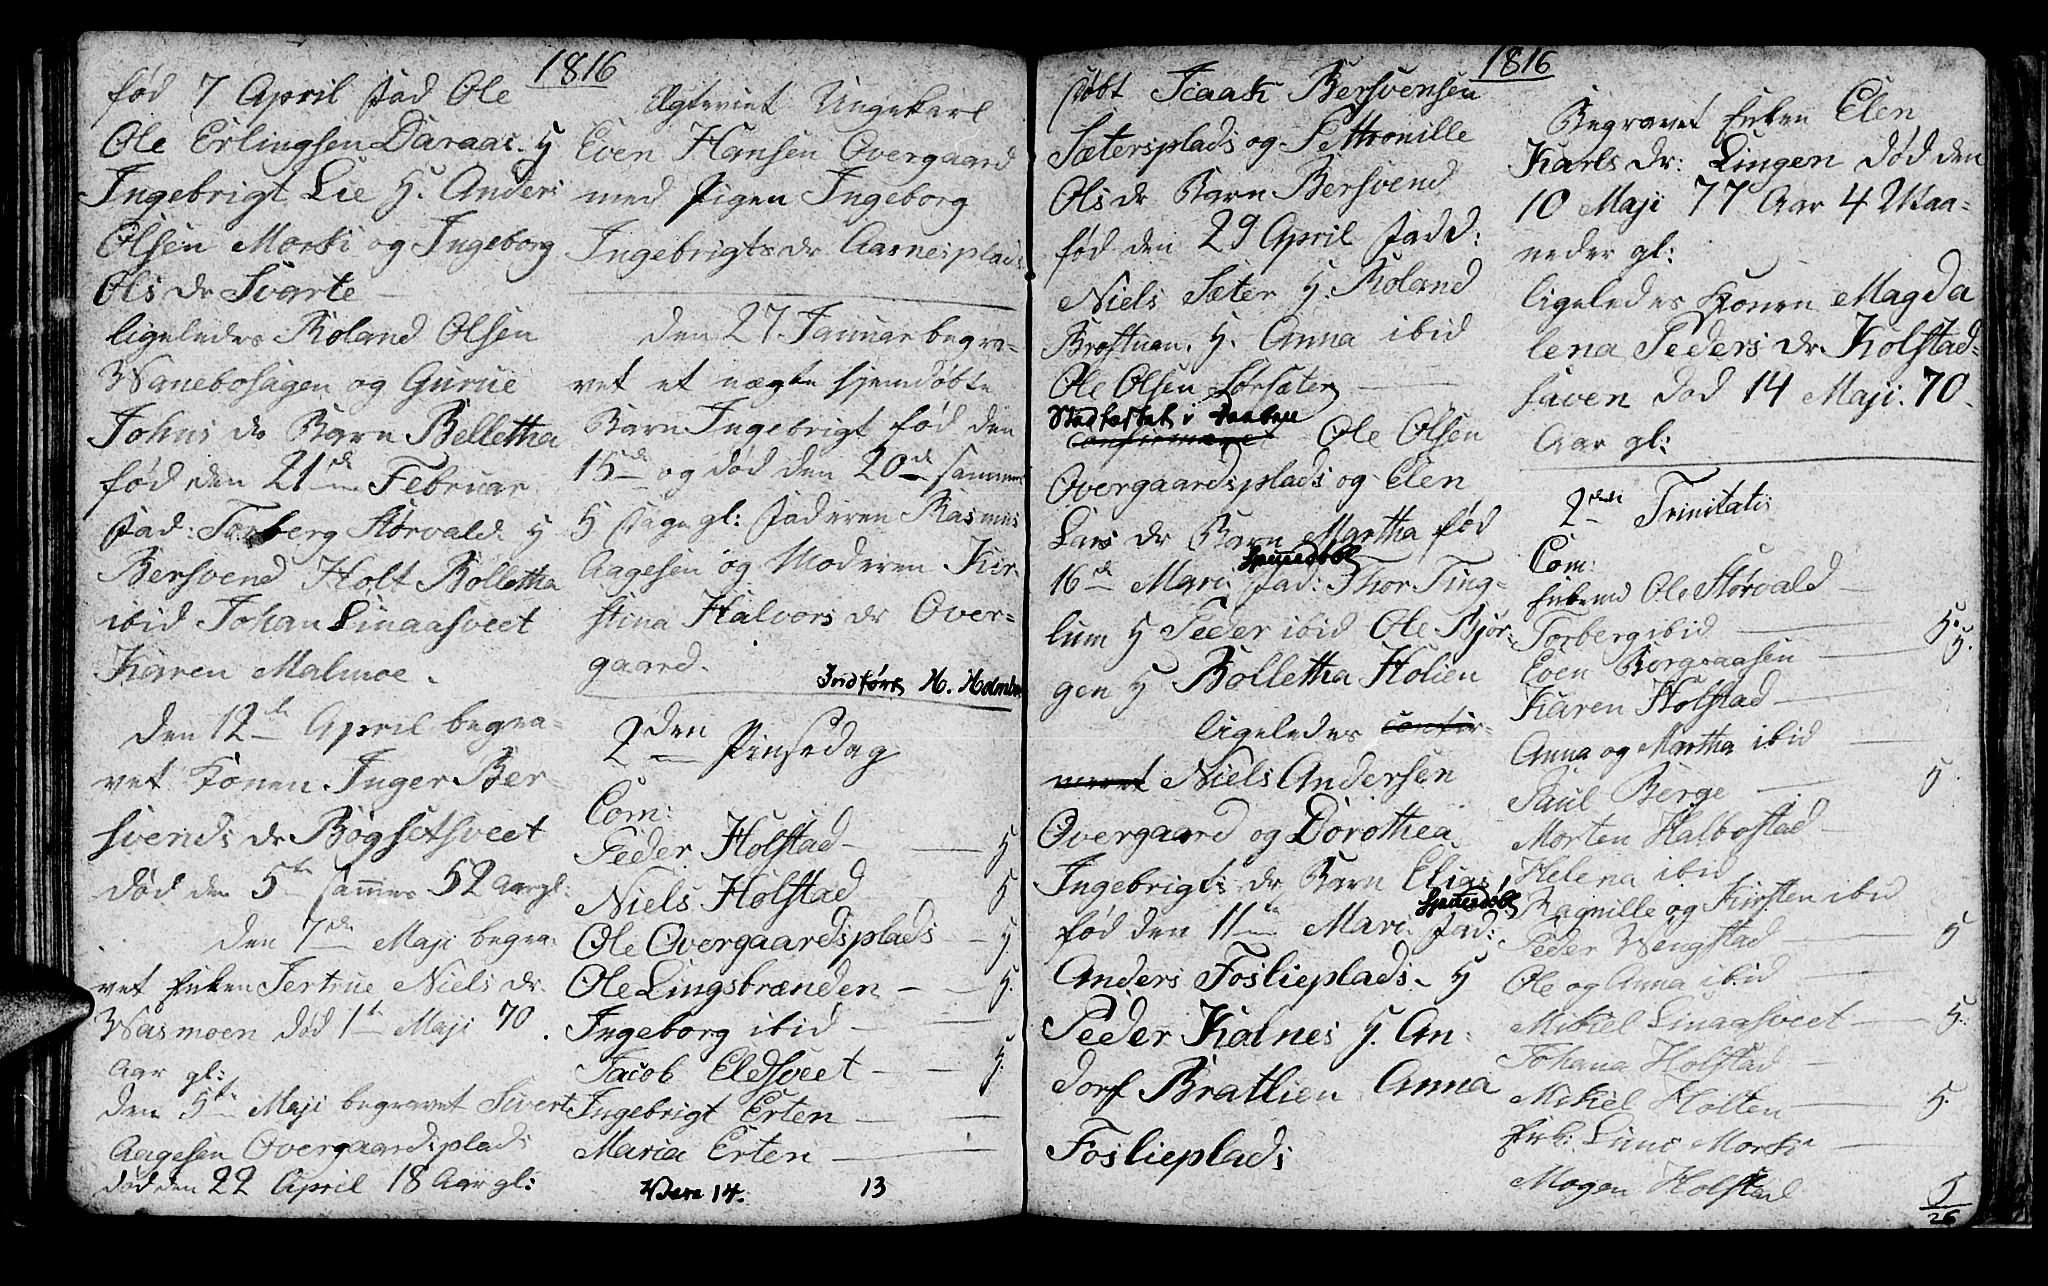 1816
fød 7 April fad Ole
Ole Erlingsen Daraas. H
Ingebrigt Lie H. Anders
Olsen Morki og Ingeborg
Ols dr Svarte
ligeledes Roland Olsen
Wanebohagen og Gurue
Johns dr Barn Belletha
fød den 21de Februar
fad: Torberg Størvald. H
Bersvend Holt Bolletha
ibid Johan Linaasveet
Karen Malmoe.
den 12te April begra-
vet Konen Inger Ber-
svends dr Bøgsetsveet
død den 5te samme 52 Aar gl:
den 7de Maji begra-
vet Enken Jertrue Niels dr
Wasmoen død 1te Maji 70.
Aar gl:
den 5te Maji begravet Sivert
Aagesen Overgaardsplads
død den 22 April 18 Aar gl:
Egteviet Ungekarl
Even Hansen Overgaard
med Pigen Ingeborg
Ingebrigts dr Aarnesplads
den 27 Januar begra-
vet et uægte hjemdøbte
Barn Ingebrigt fød den
15de og død den 20de samme
5 Dage gl: Faderen Rasmus
Aagesen og Moderen Kir-
stina Halvors dr Over-
gaard.
Indført H. Holmboe
2den Pinsedag
Com:
Peder Holstad — 5
Niels Holstad — 5
Ole Overgaardsplads — 5.
Ole Lingsbrænden — 5.
Ingeborg ibid —
Jacob Eldsveet — 5.
Ingebrigt Erten —
Maria Erten —
14. 13
1816
døbt Isaak Bersvensen
Sætersplads og Pettronille
Ols dr Barn Bersvend
fød den 29 April fadd:
Niels Sæter H. Roland
Brøstuen. H. Anna ibid
Ole Olsen Lorsæter
Stadfæstet i Daaben
Confirmeret Ole Olsen
Overgaardsplads og Elen
Lars dr Barn Martha fød
hjemmedøbt
16de Mari fad: Thor Ting-
lum H Peder ibid Ole Bjør-
gen H Bolletha Holien
ligeledes confir-
meret Niels Andersen
Overgaard og Dorothea
Ingebrigts dr Barn Elias
hjemmedøbt
fød den 11te Mari fad:
Anders Foslieplads. H
Peder Kalnes H. An-
dorf Bratlien Anna
Foslieplads
Begravet Enken Elen
Karls dr: Lingen død den
10 Maji 77 Aar 4 Maa-
neder gl:
ligeledes Konen Magda
lena Peders dr. Holstad-
haven død 14 Maji. 70.
Aar gl:
2den Trinitatis
Com:
Enkemd Ole Størvald —
Torberg ibid — 5.
Even Borgraasen — 5.
Karen Holstad —
Anna og Martha ibid —
Paul Berge — 5.
Morten Halbostad —
Helena ibid
Ragnille og Kirsten ibid
Peder Wengstad — 5
Ole og Anna ibid —
Mikiel Linaasveet — 5.
Johana Holstad —
Mikiel Holten — 5.
Enk: Morki —
Mogen Holstad 5
26